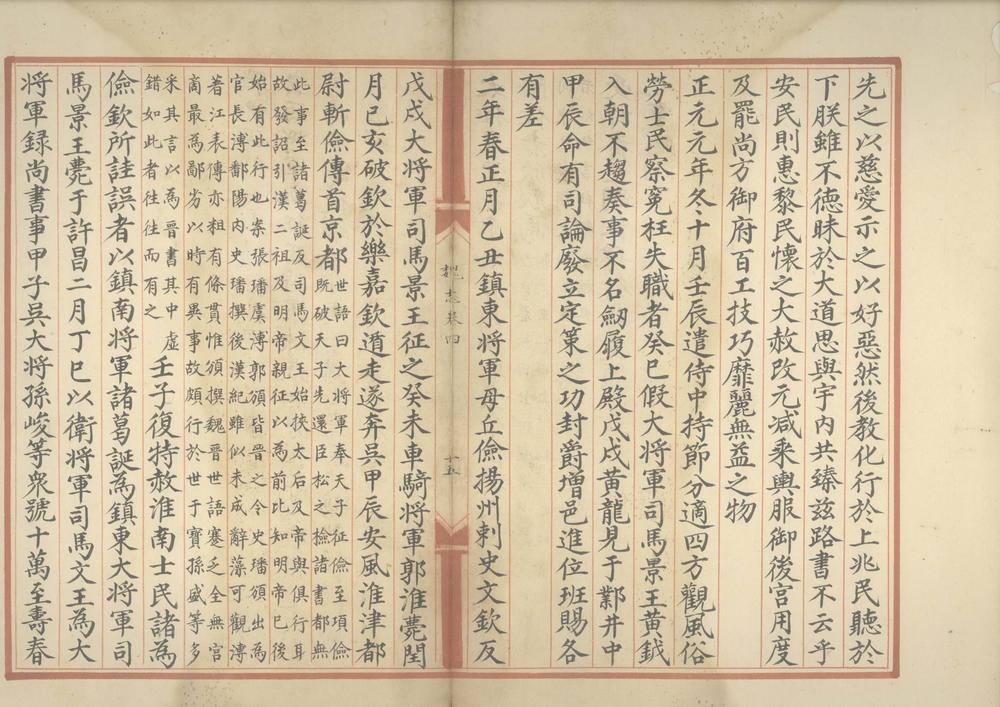 先之以慈愛示之以好惡然後教化行於上兆民聽於
下朕雖不德昧於大道思與宇内共臻茲路書不云乎
安民則惠黎民懷之大赦改元减乘輿服御後宮用度
及罷尚方御府百工技巧靡麗無益之物
正元元年冬十月壬辰遣侍中持節分適四方觀風俗
勞士民察冤枉失職者癸巳假大將軍司馬景王黃鉞
入朝不趨奏事不名劒履上殿戊戌黃龍見于鄴井中
甲辰命有司論廢立定策之功封爵增邑進位班賜各
有差
二年春正月乙丑鎮東將軍毋丘儉揚州刺史文欽反
魏志卷四 十五
戊戌大將軍司馬景王征之癸未車騎將軍郭淮薨閏
月己亥破欽於樂嘉欽遁走遂奔吳甲辰安風淮津都
尉斬儉傳首京都
世語曰大將軍奉天子征儉至項儉
既破天子先還臣松之檢諸書都無
此事至諸葛誕反司馬文王始挾太后及帝與俱行耳
故發詔引漢二祖及明帝親征以為前比知明帝已後
始有此行也案張璠虞溥郭頒皆晉之令史璠頒出為
官長溥鄱陽内史璠撰後漢紀雖似未成辭藻可觀溥
著江表傳亦粗有條貫惟頒撰魏晉世語蹇乏全無宮
商最為鄙劣以時有異事故頗行於世干寶孫盛等多
采其言以為晉書其中虛
錯如此者往往而有之
壬子復特赦淮南士民諸為
儉欽所詿誤者以鎮南將軍諸葛誕為鎮東大將軍司
馬景王薨于許昌二月丁巳以衛將軍司馬文王為大
將軍録尚書事甲子吳大將孫峻等衆號十萬至壽春